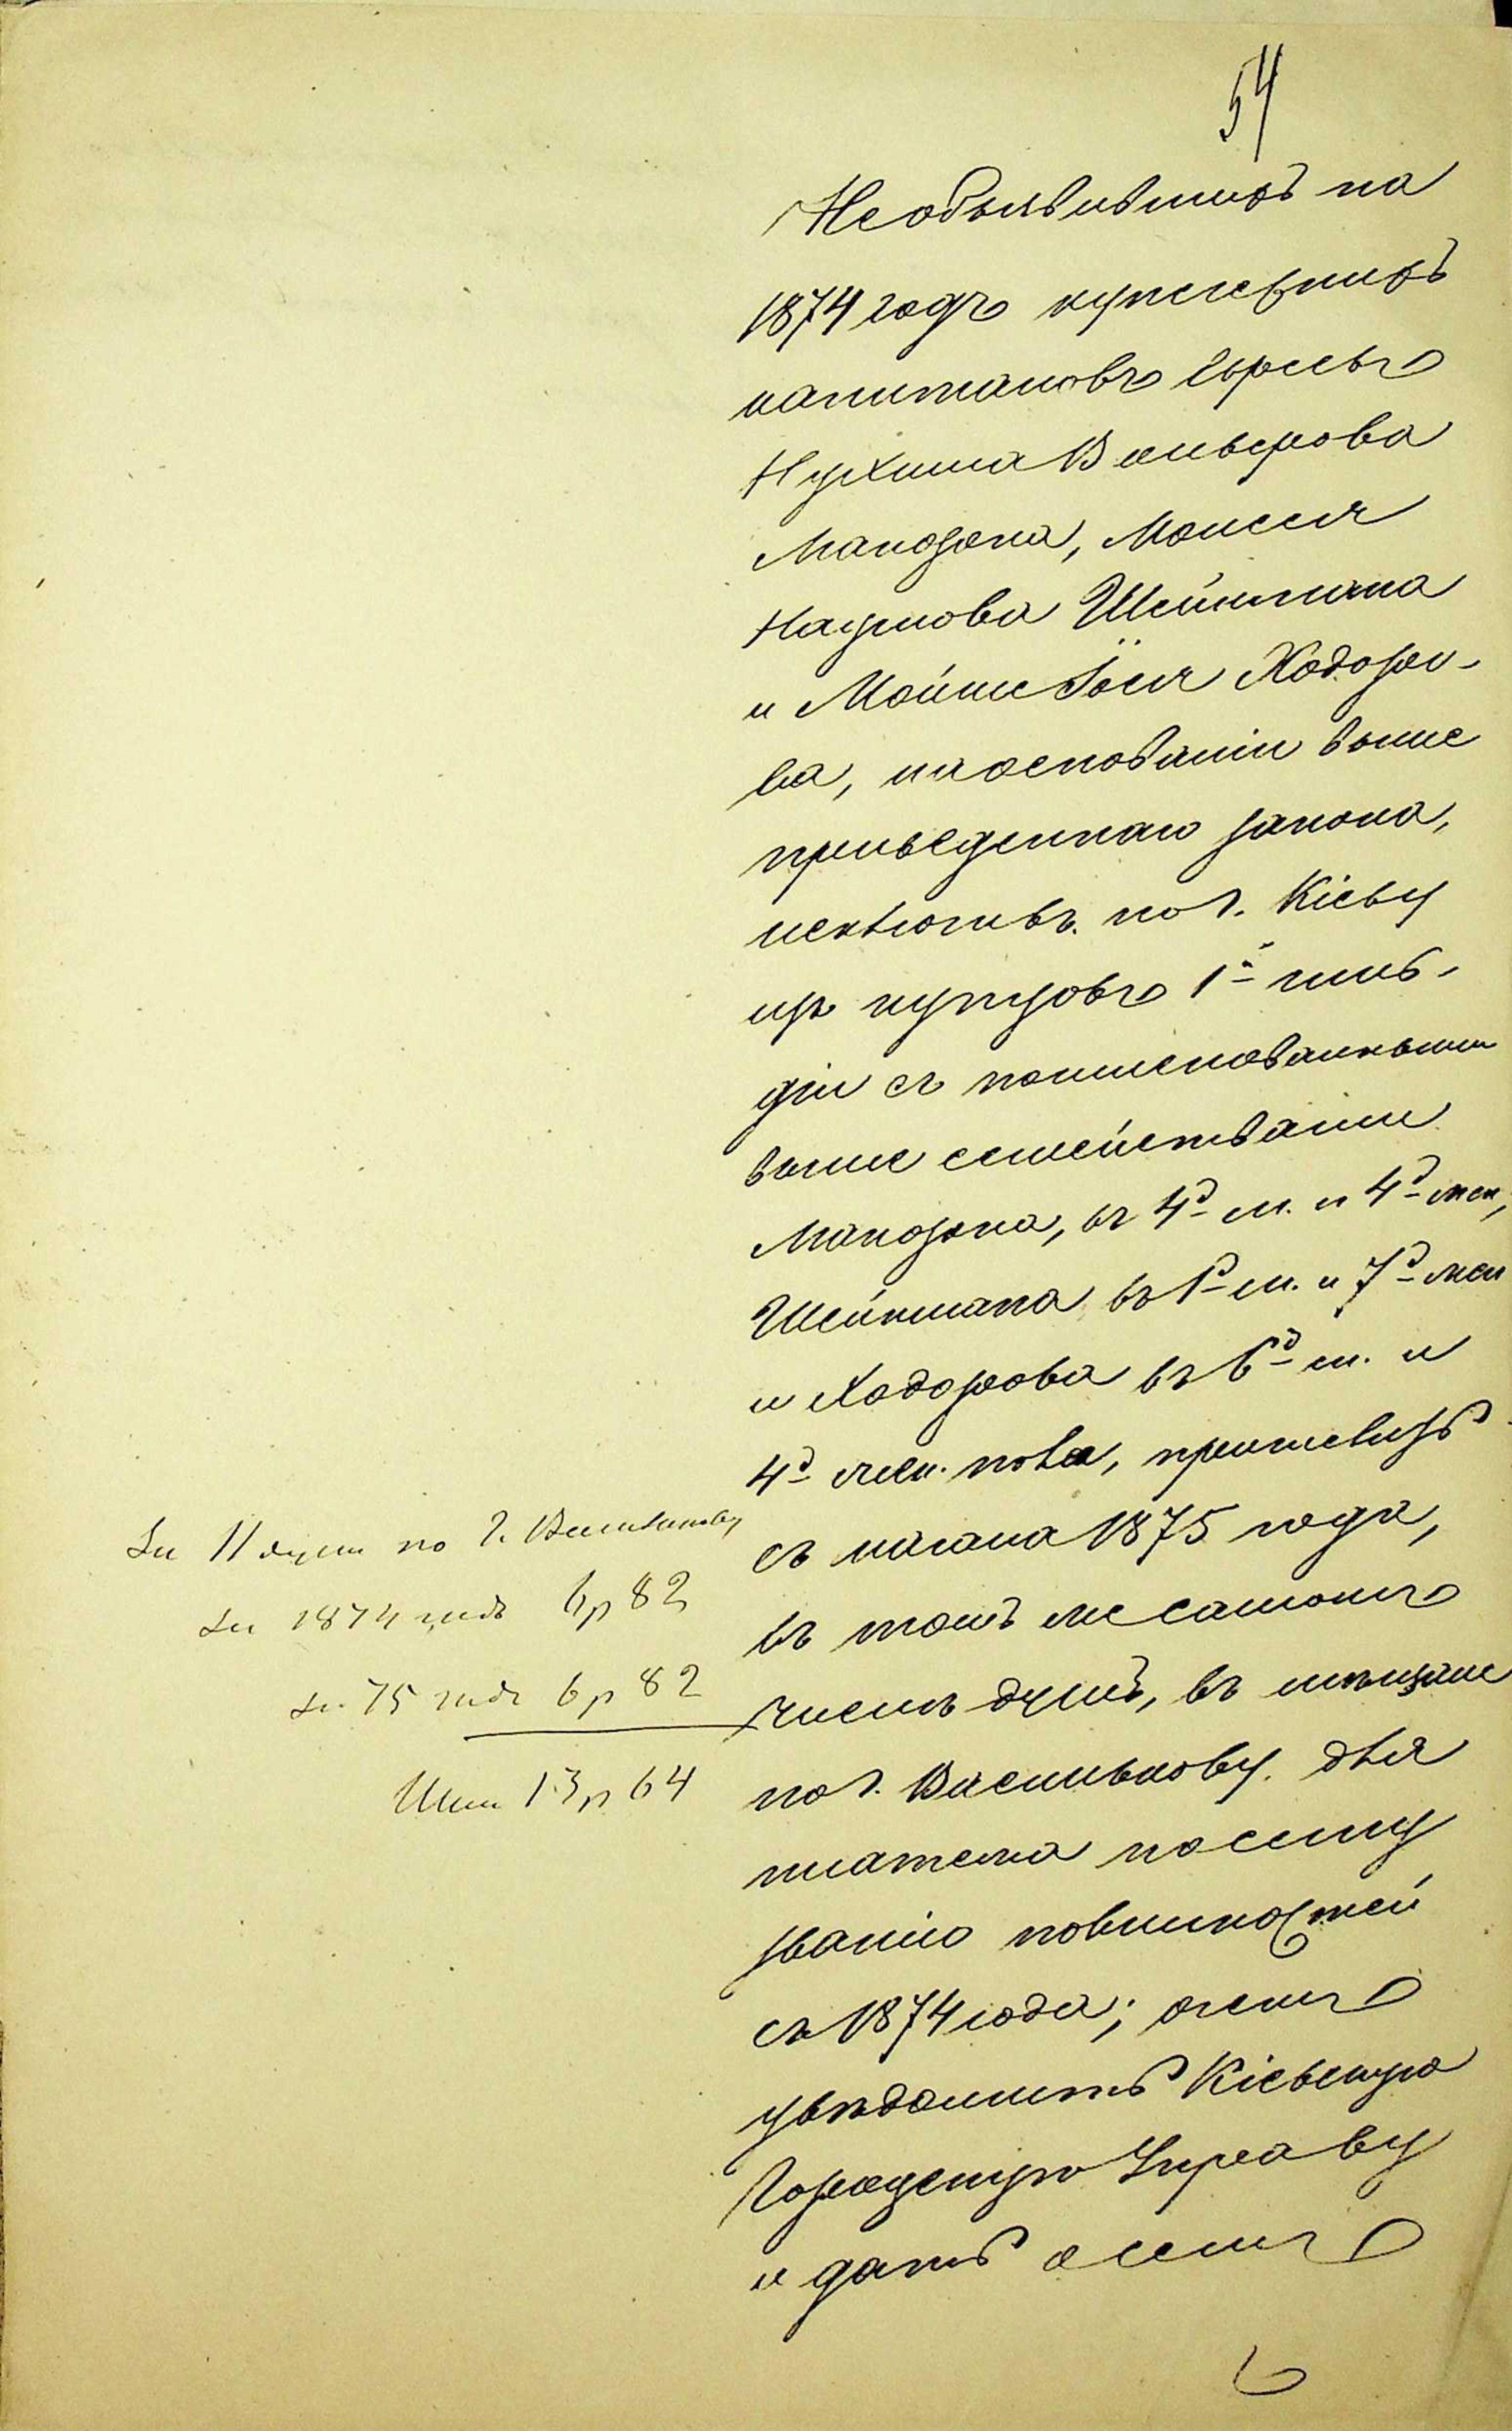 54
Необъявившихъ на
1874 годъ купеческихъ
капиталовъ евреевъ
Нухима Вольфова
Манозона, Моисея
Наумова Шейнмана
и Мойше Іося Ходоро-
ва, на основаніи выше
приведеннаго закона,
исключивъ по г. Кіеву
изъ купцовъ 1й гиль-
діи съ поименованными
выше семействами
Манозона, въ 4д м. и 4д жен,
Шейнмана въ 1д м. и 7д жен
и Ходорова въ 6д м. и
4д жен. пола, причислить
съ начала 1875 года,
въ томъ же самомъ
числѣ душъ, въ мѣщане
по г. Василькову. для
платежа по сему
званію повинностей
съ 1874 года; о чемъ
увѣдомить Кіевскую
Городскую Управу
и дать о семъ
За 11 душъ по г. Василькову
за 1874 годъ 6р 82
за 75 годъ 6р 82
13р 64